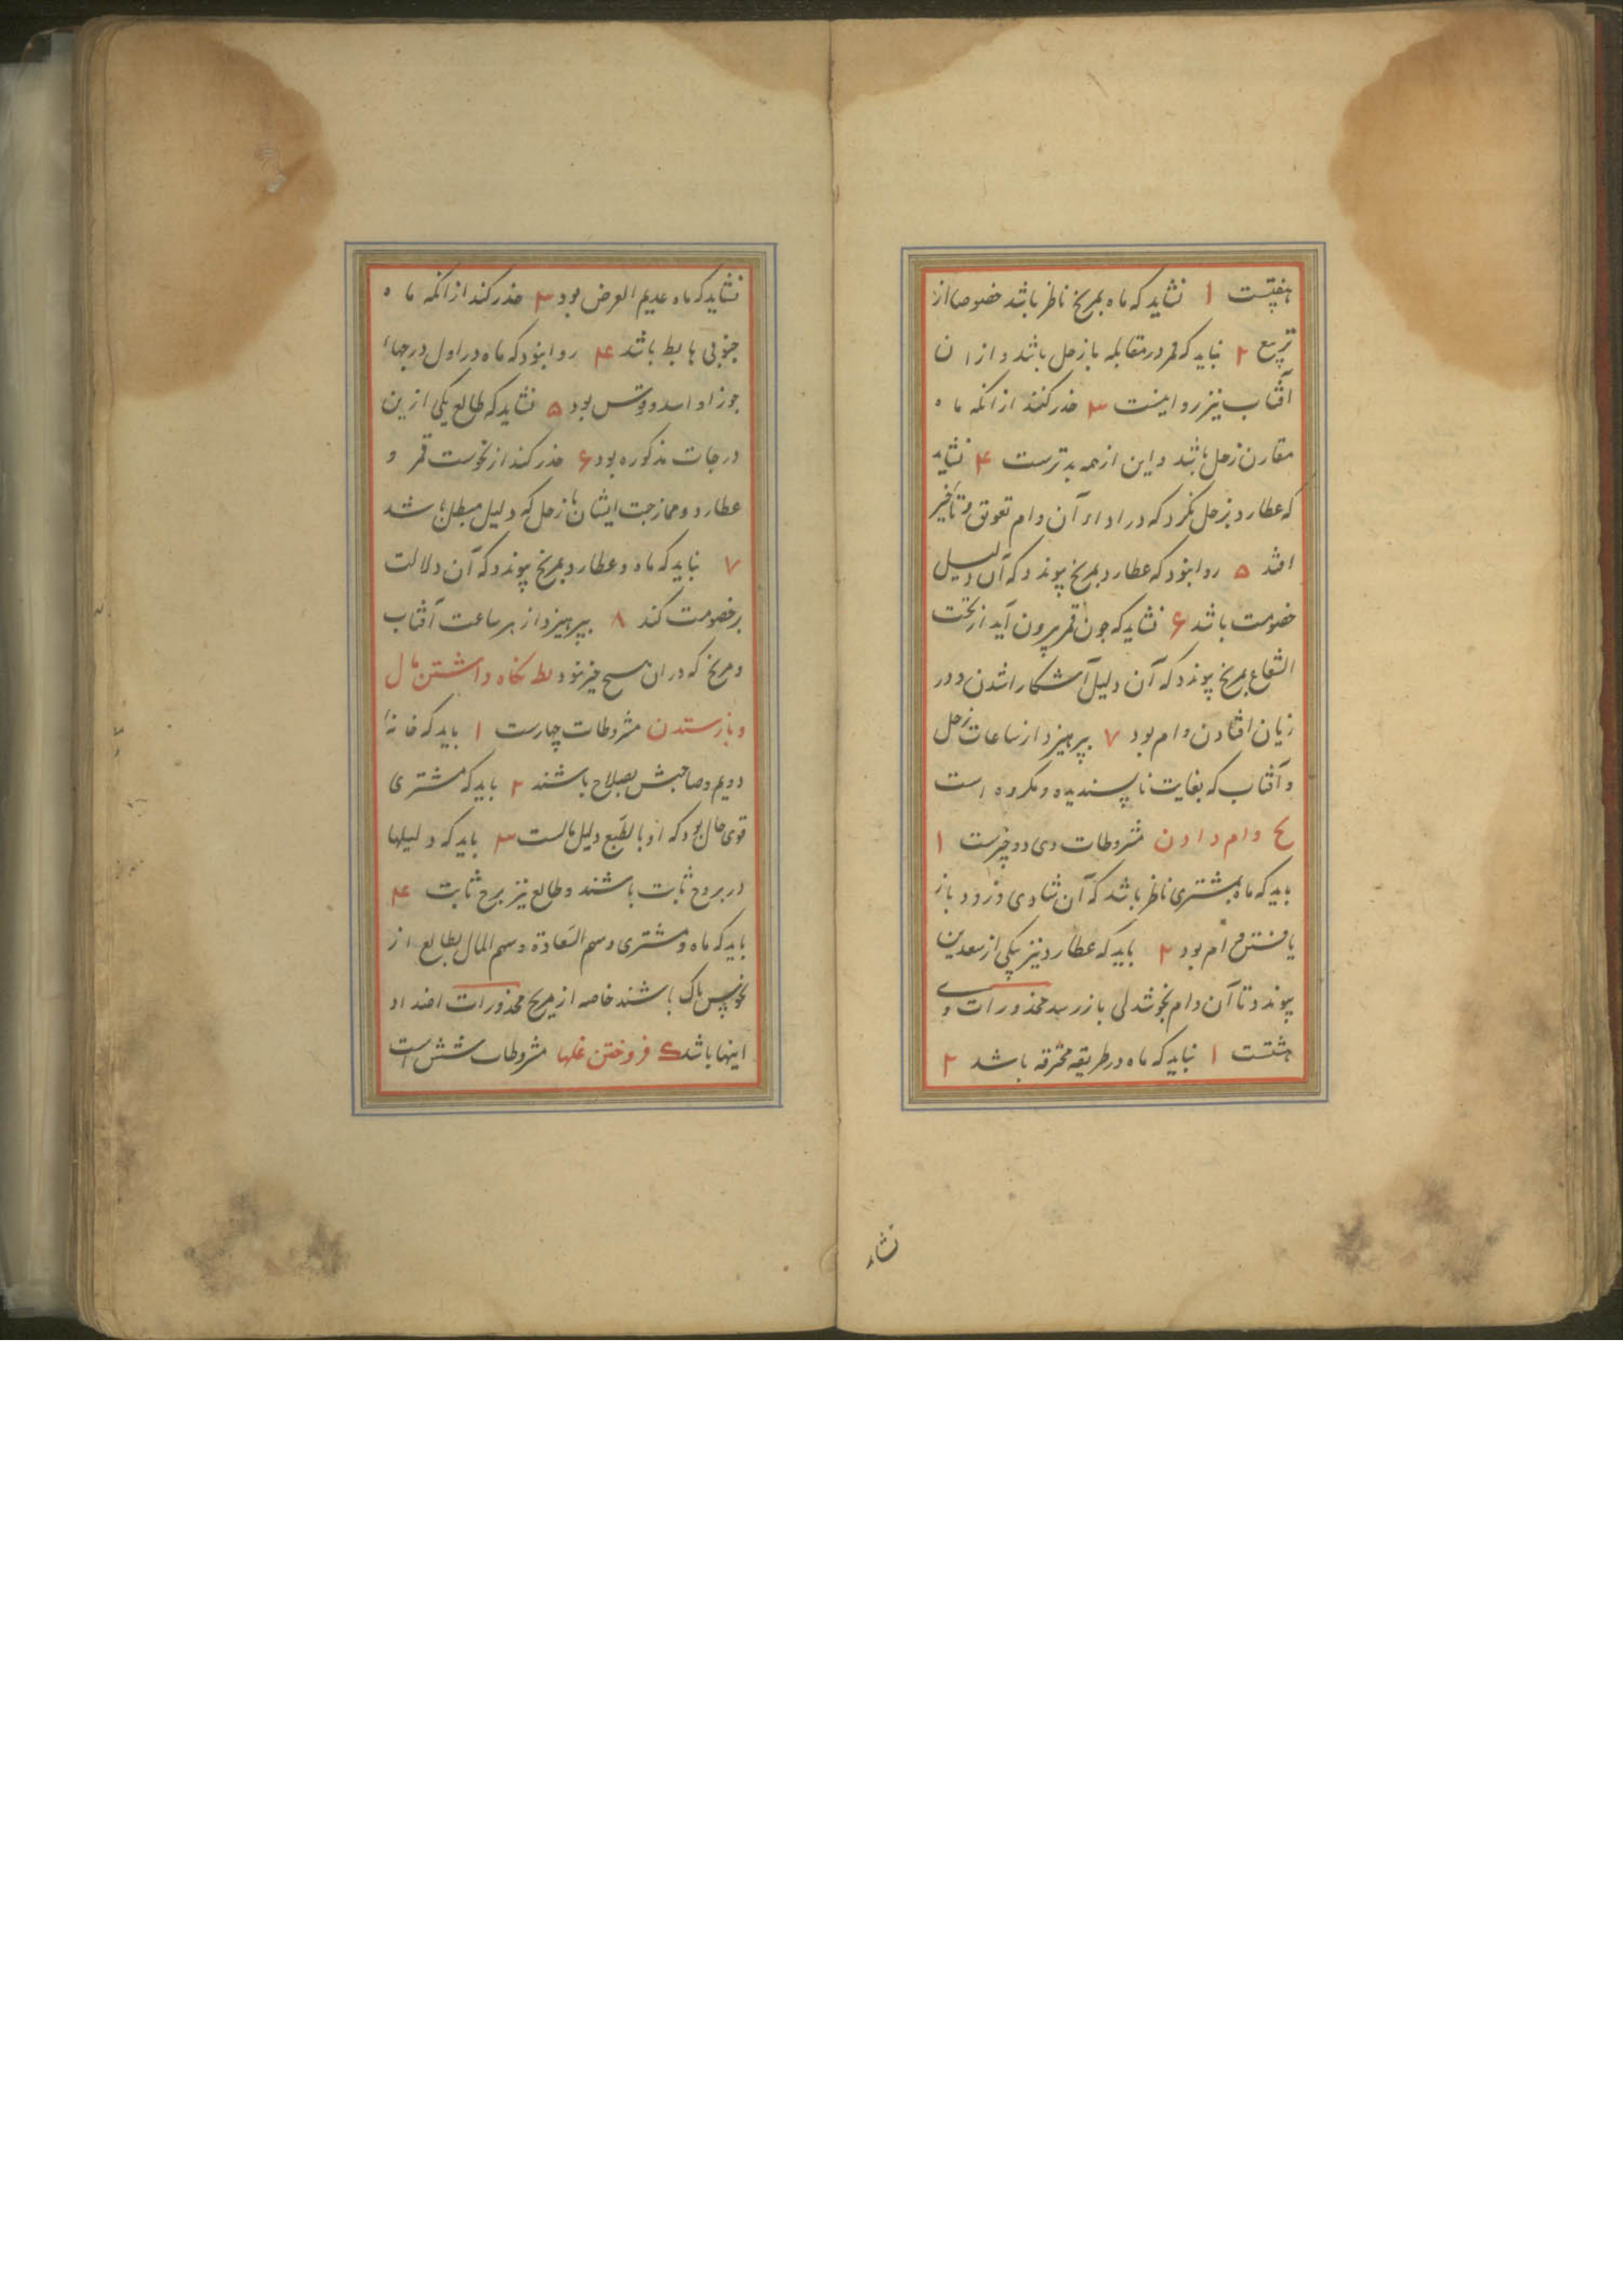 هفتست ۱ نشاید که ماه بمریخ ناظر باشد خصوصا از
تربیع ۲ نباید که قمر در مقابله با زحل باشد و از ان
آفتاب نیز روا نیست ۳ حذر کنند از انکه ماه
مقارن زحل باشد و این از همه بدترست ۴ نشاید
که عطارد بزحل نکرد که در اداء آن وام تعوق و تأخیر
افتد ۵ روا نبود که عطارد بمریخ پیوندد که آن دلیل
خصومت باشد ۶ نشاید که جون قمر بیرون آید از تحت
الشعاع بمریخ پیوندد که آن دلیل آشکارا شدن و در
زیان افتادن وام بود ۷ بپرهیزد از ساعات زحل
و آفتاب که بغایت ناپسندیده و مکروه است
یح وام دادن مشروطات وی دو چیزست ۱
باید که ماه بمشتری ناظر باشد که آن شادی و زود باز
یافتن وام بود ۲ باید که عطارد نیز بیکی از سعدین
پیوندد تا آن وام بخوشدلی باز رسد محذورات وی
هشتست ۱ نباید که ماه در طریقه محترقه باشد ۲
نشاید
نشاید که ماه عدیم العرض بود ۳ حذر کند از انکه ماه
جنوبی هابط باشد ۴ روا نبود که ماه در اول درجهاء
جوزا و اسد و قوس بود ۵ نشاید که طالع یکی ازین
درجات مذکوره بود ۶ حذر کند از نحوست قمر و
عطارد و ممازجت ایشان با زحل که دلیل مبطل باشد
۷ نباید که ماه و عطارد بمریخ پیوندد که آن دلالت
بر خصومت کند ۸ بپرهیزد از هر ساعت آفتاب
و مریخ که در ان هیچ خیر نبود یط نکاه داشتن مال
و باز ستدن مشروطات چهارست ۱ باید که خانهٔ
دویم و صاحبش بصلاح باشند ۲ باید که مشتری
قوی حال بود که او بالطبع دلیل مالست ۳ باید که دلیلها
در بروج ثابت باشند و طالع نیز برج ثابت ۴
باید که ماه و مشتری و سهم السّعادة و سهم المال بطالع از
نحوس پاک باشند خاصه از مریخ محذورات اضداد
اینها باشد ک فروختن غلها مشروطات شش است